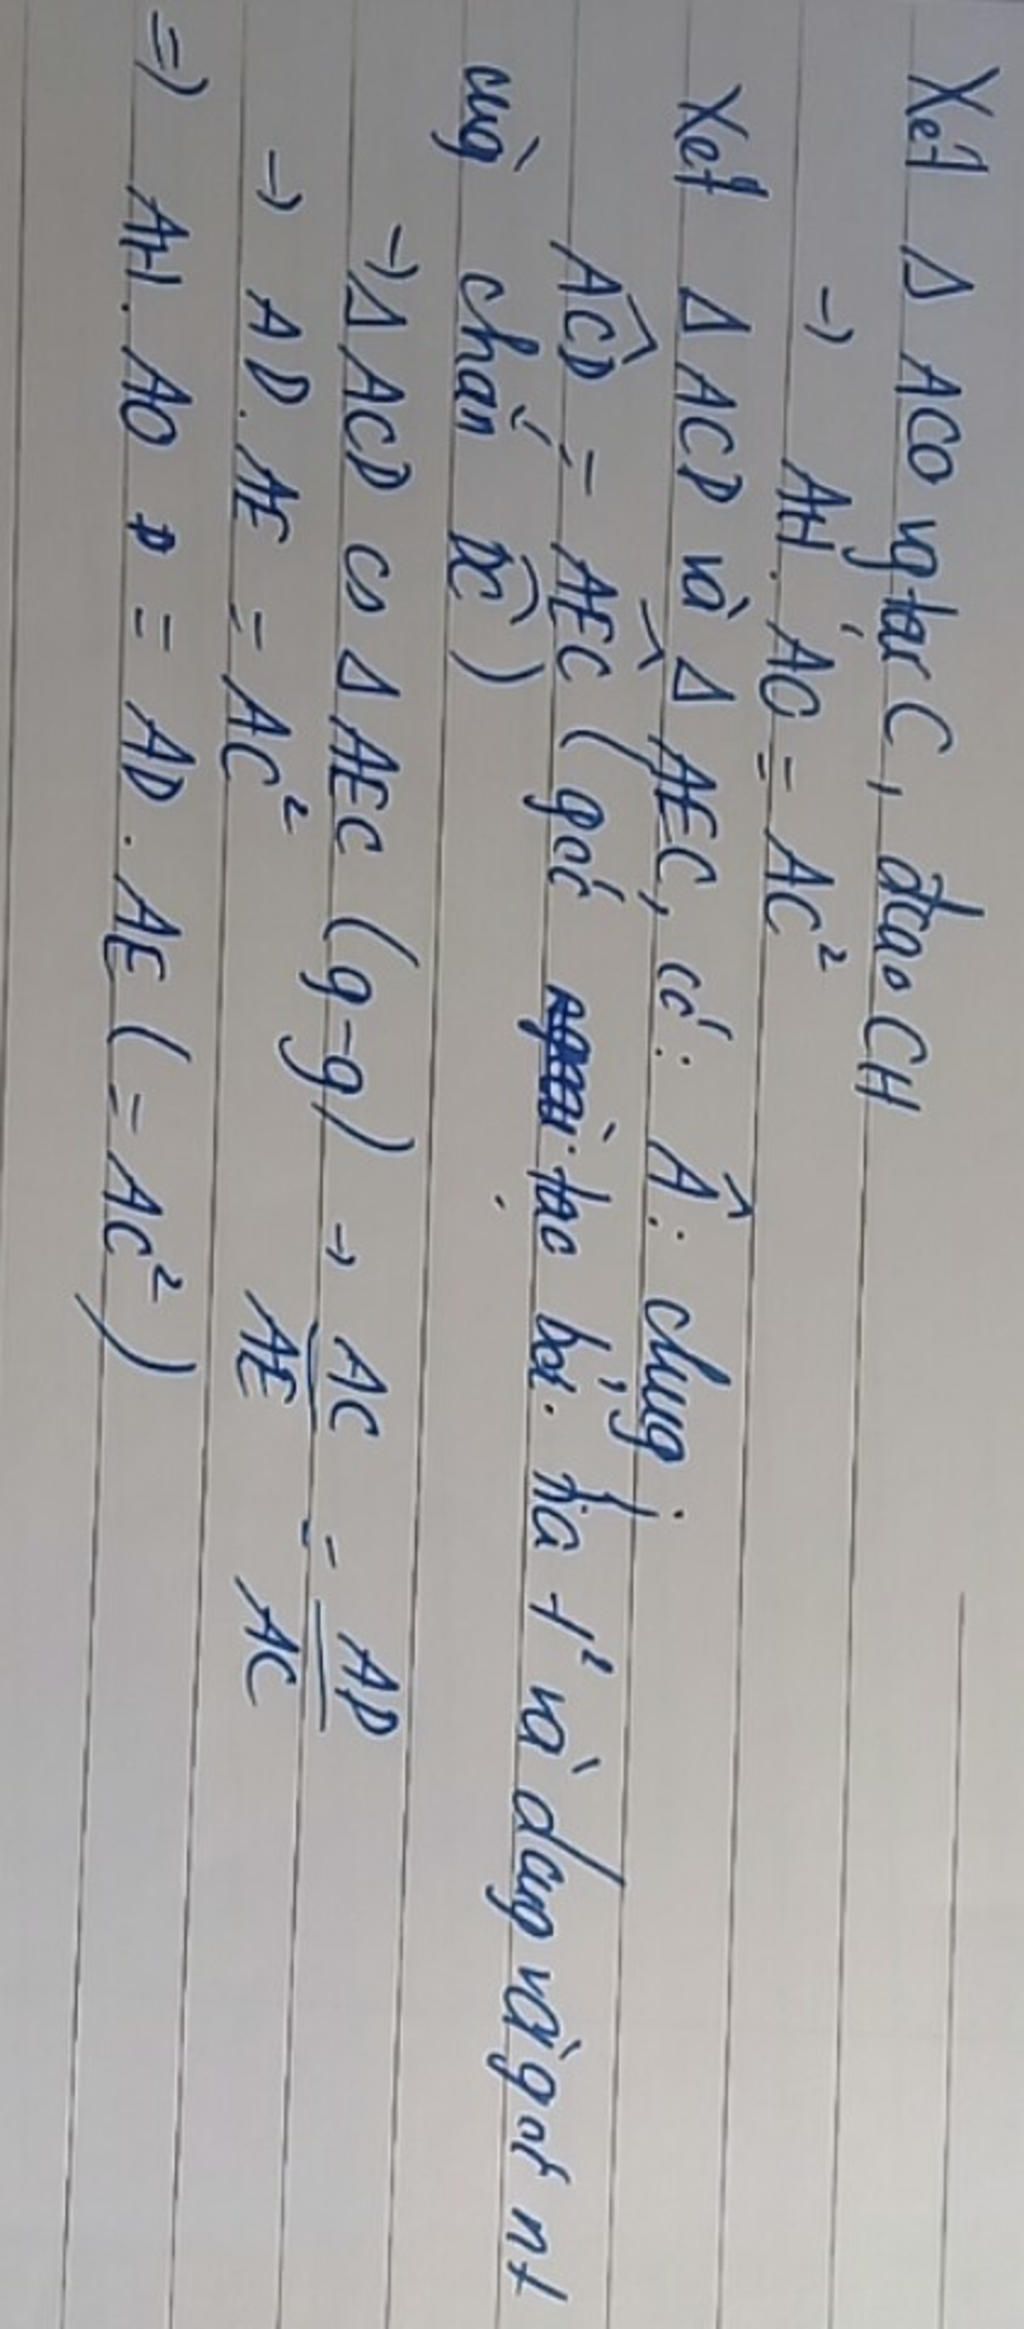 Xét Δ ACO vg tại C, đcao CH
→ AH. AO = AC²
Xét Δ ACD và Δ AEC, có: Â: chung
ACD = AEC (góc tạo bởi tia t² và dây và góc nt
cùg chắn DC)
→ Δ ACD ∽ Δ AEC (g-g) → AC/AE = AD/AC
→ AD. AE = AC²
=> AH. AO = AD. AE (= AC²)